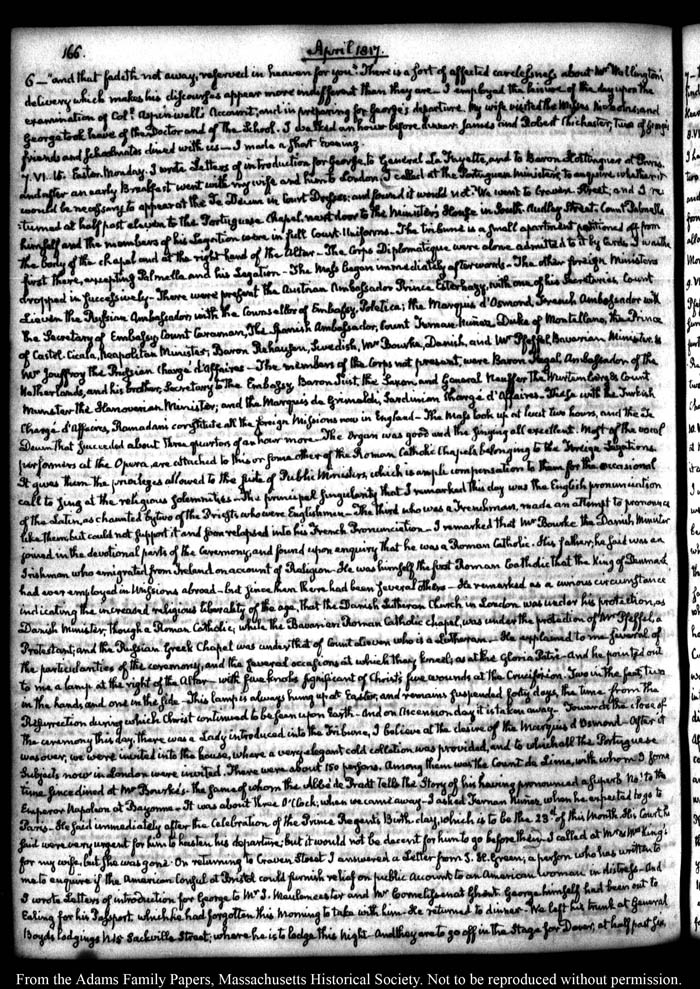 166.
April 1817.
6 — "and that fadeth not away, reserved in heaven for you." There is a sort of affected carelessness about Mr Wellington's
delivery which makes his discourses appear more indifferent than they are — I employed the leisure of the day upon the
examination of Coll. Aspinwall's Account, and in preparing for George's departure. My wife visited the Misses Nicholas, and
George took leave of the Doctor and of the School. I walked an hour before dinner. James and Robert Chichester, two of George's
friends and Schoolmates dined with us — I made a short evening.
7. VI. 15. Easter Monday. I wrote Letters of introduction for George to General La Fayette, and to Baron Hottinguer at Paris.
and after an early Breakfast went with my wife and him to London. I called at the Portuguese Minister's to enquire whether it
would be necessary to appear at the Te Deum in Court Dresses; and found it would not. We went to Craven Street, and I re
:turned at half past eleven to the Portuguese Chapel, next door to the Minister's House in South Audley Street. Count Palmella
himself and the members of his Legation were in full Court Uniforms. The tribune is a small apartment partitioned off from
the body of the chapel and at the right hand of the Altar — The Corps Diplomatique were alone admitted to it by cards. I was the
first there, excepting Palmella and his Legation — The Mass began immediately afterwards — The other foreign Ministers
dropped in successively — There were present the Austrian Ambassador Prince Esterhazy, with one of his Secretaries Count
Lieven the Russian Ambassador, with the Counsellor of Embassy, Poletica; the Marquis d'Osmond, French Ambassador with
the Secretary of Embassy Count Caraman, The Spanish Ambassador, Count Fernan-Nuñez, Duke of Montellano, the Prince
of Castel-Cicala, Neapolitan Minister; Baron Rehausen, Swedish, Mr Bourke, Danish, and Mr Pfeffel Bavarian Minister. &
Mr Jouffroy the Prussian Chargé d'Affaires — The members of the Corps not present, were Baron Fagel, Ambassador of the
Netherlands, and his brother, Secretary to the Embassy, Baron Just, the Saxon and General Neuffer the Wurtemberg & Count
Munster the Hanoverian Minister; and the Marquis de Grimaldi, Sardinian Chargé d'Affaires — These with the Turkish
Chargé d'Affaires, Ramadani constitute all the foreign Missions now in England — The Mass took up at least two hours, and the Te
Deum that succeeded about three quarters of an hour more — The Organ was good and the singing all excellent. Most of the vocal
performers at the Opera, are attached to this or some other of the Roman Catholic Chapels belonging to the Foreign Legations.
It gives them the privileges allowed to the suite of Public Ministers, which is ample compensation to them for the occasional
call to sing at the religious solemnities — The principal singularity that I remarked this day was the English pronunciation
of the Latin, as chaunted by two of the Priests who were Englishmen — The third who was a Frenchman, made an attempt to pronounce
like them but could not support it and soon relapsed into his French Pronunciation — I remarked that Mr Bourke the Danish Minister
joined in the devotional parts of the Ceremony, and found upon enquiry that he was a Roman Catholic. His father, he said was an
Irishman who emigrated from Ireland on account of Religion — He was himself the first Roman Catholic that the King of Denmark
had ever employed in Missions abroad — but since then there had been several others — He remarked as a curious circumstance
indicating the increased religious liberality of the age, that the Danish Lutheran Church in London was under his protection, as
Danish Minister, though a Roman Catholic; while the Bavarian Roman Catholic chapel, was under the protection of Mr Pfeffel, a
Protestant; and the Russian Greek Chapel was under that of Count Lieven who is a Lutheran — He explained to me several of
the particularities of the ceremony, and the several occasions at which they kneel; as at the Gloria Patri — And he pointed out
to me a lamp at the right of the Altar — with five knobs significant of Christ's five wounds at the Crucifixion. Two in the feet, two
in the hands and one in the side — This lamp is always hung up at Easter, and remains suspended forty days, the time from the
Resurrection during which Christ continued to be seen upon Earth — And on Ascension day it is taken away — Towards the close of
the ceremony this day, there was a Lady introduced into the Tribune, I believe at the desire of the Marquis d'Osmond — After it
was over, we were invited into the house, where a very elegant cold collation was provided, and to which all the Portuguese
Subjects now in London were invited. There were about 150 persons. Among them was the Count de Lima, with whom I some
time since dined at Mr Bourke's. the same of whom the Abbé de Pradt tells the Story of his having pronounced a superb No! to the
Emperor Napoleon at Bayonne — It was about three O'Clock, when we came away — I asked Fernan Nuñez, when he expected to go to
Paris — He said immediately after the Celebration of the Prince Regent's Birth-day, which is to be the 23d of this Month. His Court he
said were very urgent for him to hasten his departure; but it would not be decent for him to go before then — I called at Mr & Mrs King's
for my wife, but she was gone. On returning to Craven Street I answered a Letter from S. H. Green, a person who has written to
me to enquire if the American Consul at Bristol could furnish relief on public Account to an American woman in distress — And
I wrote Letters of introduction for George to Mr S. Meulemeester and Mr Cornelissen at Ghent. George himself had been out to
Ealing for his Passport, which he had forgotten this Morning to take with him — He returned to dinner — We left his trunk at General
Boyd's lodgings N. 15 Sackville Street, where he is to lodge this Night — And they are to go off in the Stage for Dover, at half past six
From the Adams Family Papers, Massachusetts Historical Society. Not to be reproduced without permission.